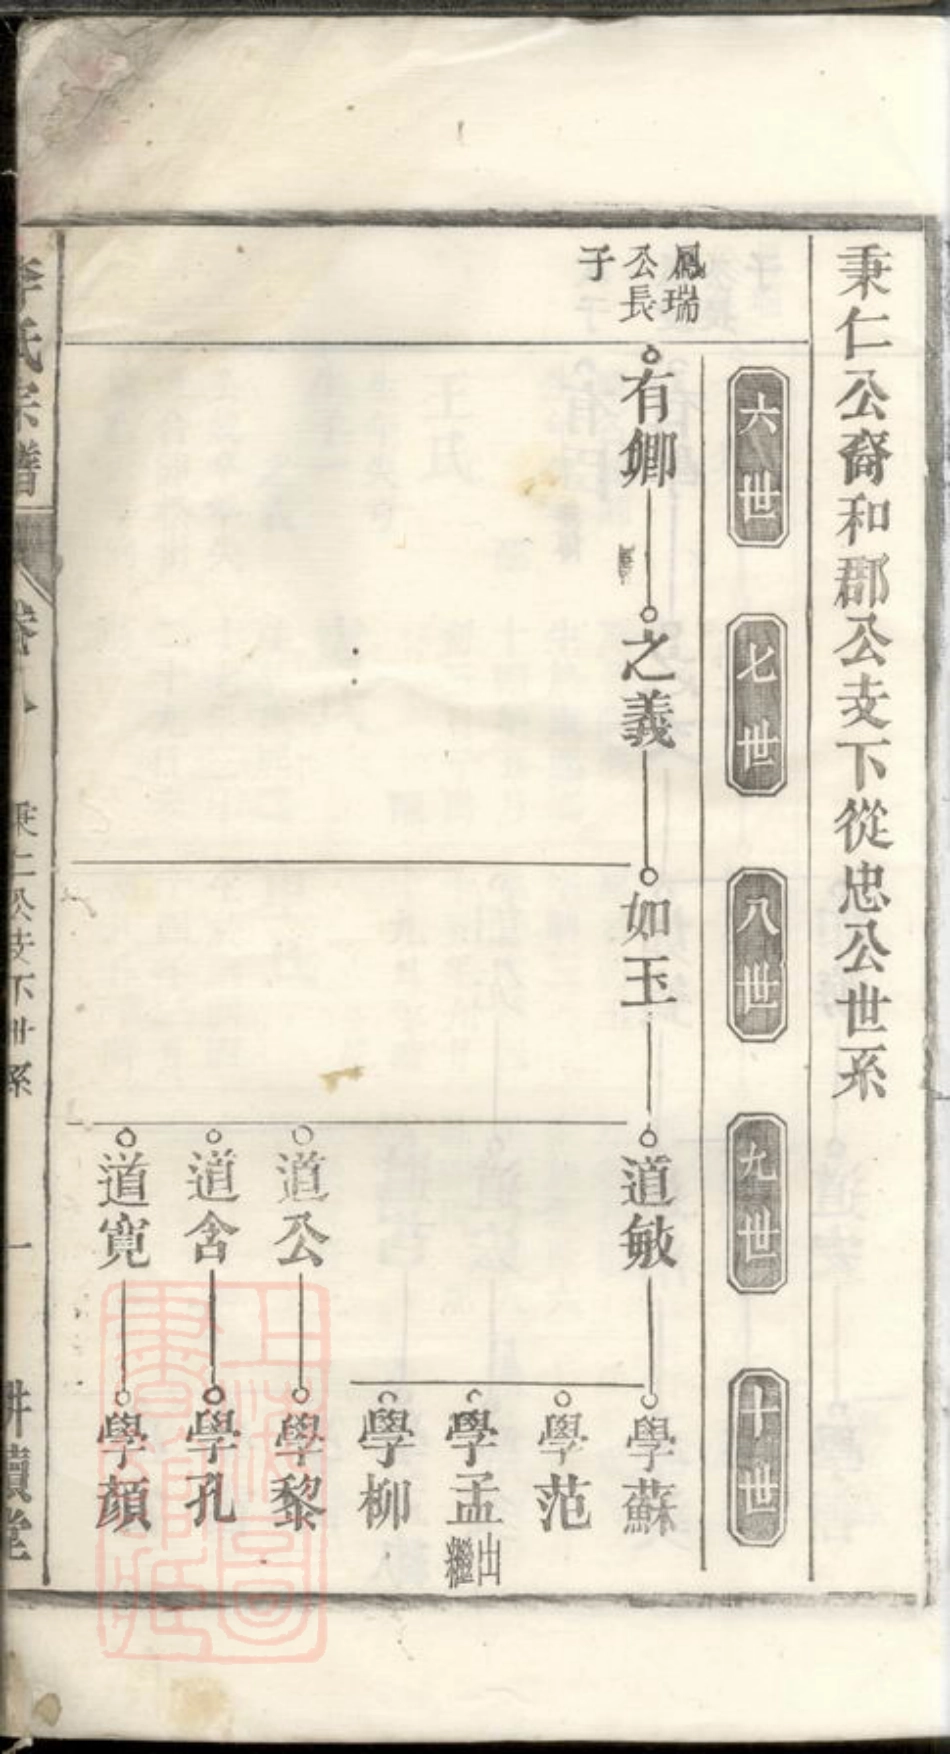 秉仁公裔和郡公支下從忠公世系
六世
七世
八世
九世
十世
鳳瑞
公長
子
有卿
之義
如玉
道敏
學蘇
學范
學孟
出
繼
學柳
道公
學黎
道含
學孔
道寬
學顏
氏宗譜
秉仁公支下世系
一
耕讀堂
上海圖
書館藏